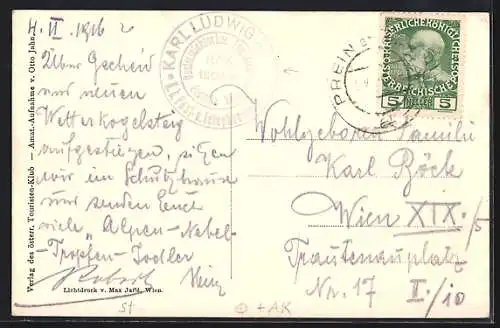 4. II. 1916
Über Gscheid
und neuen
Wetterkogelsteig
aufgestiegen, sitzen
wir im Schutzhause
und senden Euch
viele „Alpen-Nebel-
Tropfen-Jodler
Robert Heinz
Verlag des österr. Touristen-Klub — Amat.-Aufnahme v. Otto Jahn.
Lichtdruck v. Max Jaffé, Wien.
KARL LUDWIG
PREIN
KAISERLICHE KÖNIGLICHE
ÖSTERREICHISCHE
5 HELLER 5
Wohlgeboren Familie
Karl Böck
Wien XIX/5
Trautenauplatz
Nr. 17 I/10
St
+AK